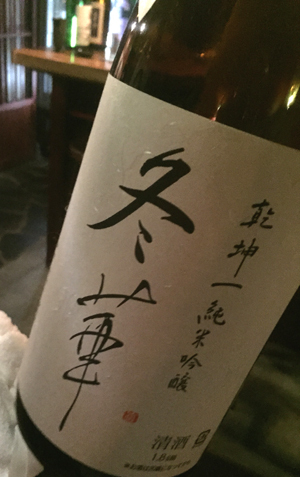 乾坤一 純米吟醸
冬華
清酒
1.8ℓ詰